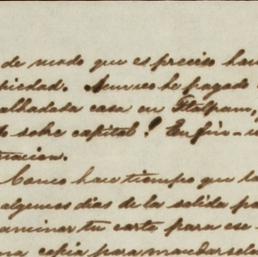 de modo que es preciso hac
piedad. Aun no he pagado
alhadada casa en Tlalpam,
sobre capital! En fin
uacion.
Como hace tiempo que la
algunos dias de la salida pa
aminar tu carta para ese
na copia para mandársela